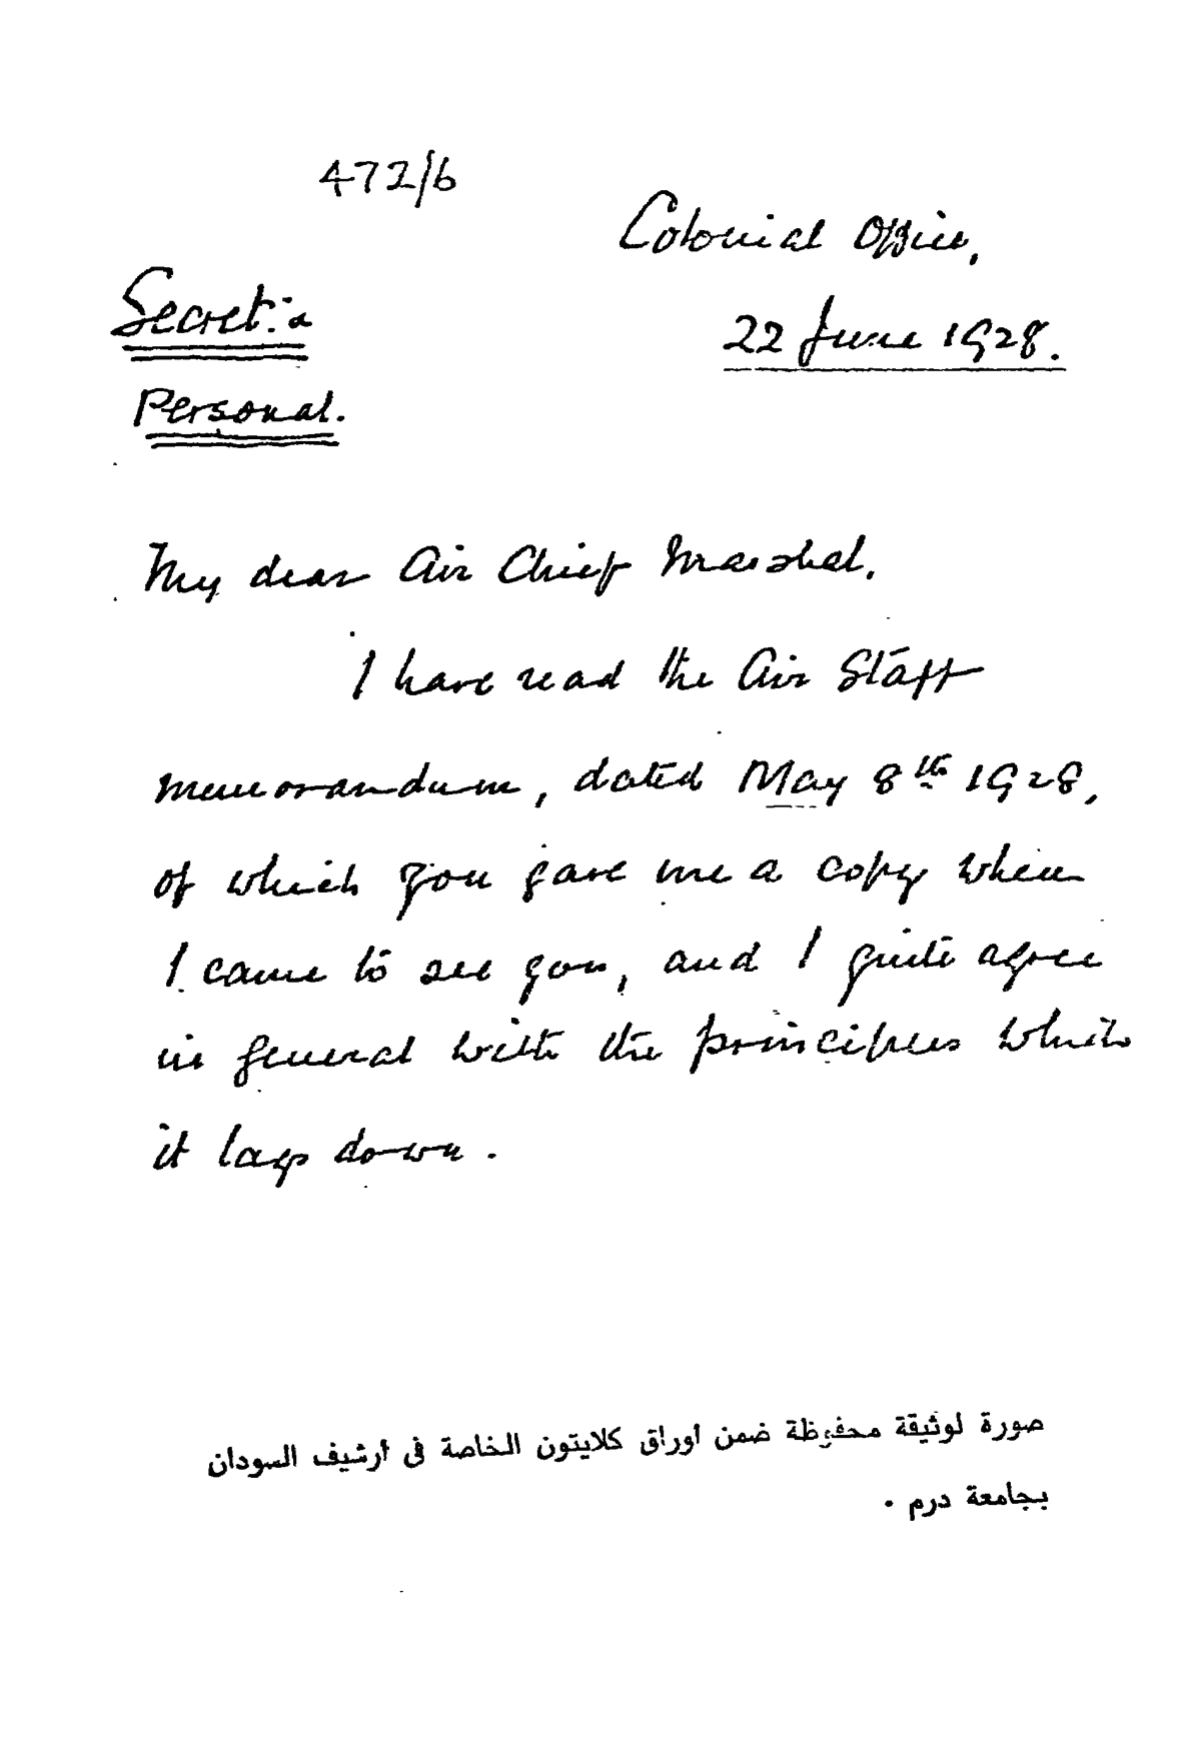 472/6
Colonial Office,
22 June 1928.
Secret: &
Personal.
My dear Air Chief Marshal.
I have read the Air Staff
memorandum, dated May 8th 1928,
of which you gave me a copy when
I came to see you, and I quite agree
in general with the principles which
it lays down.
صورة لوثيقة محفوظة ضمن أوراق كلايتون الخاصة فى أرشيف السودان
بجامعة درم .